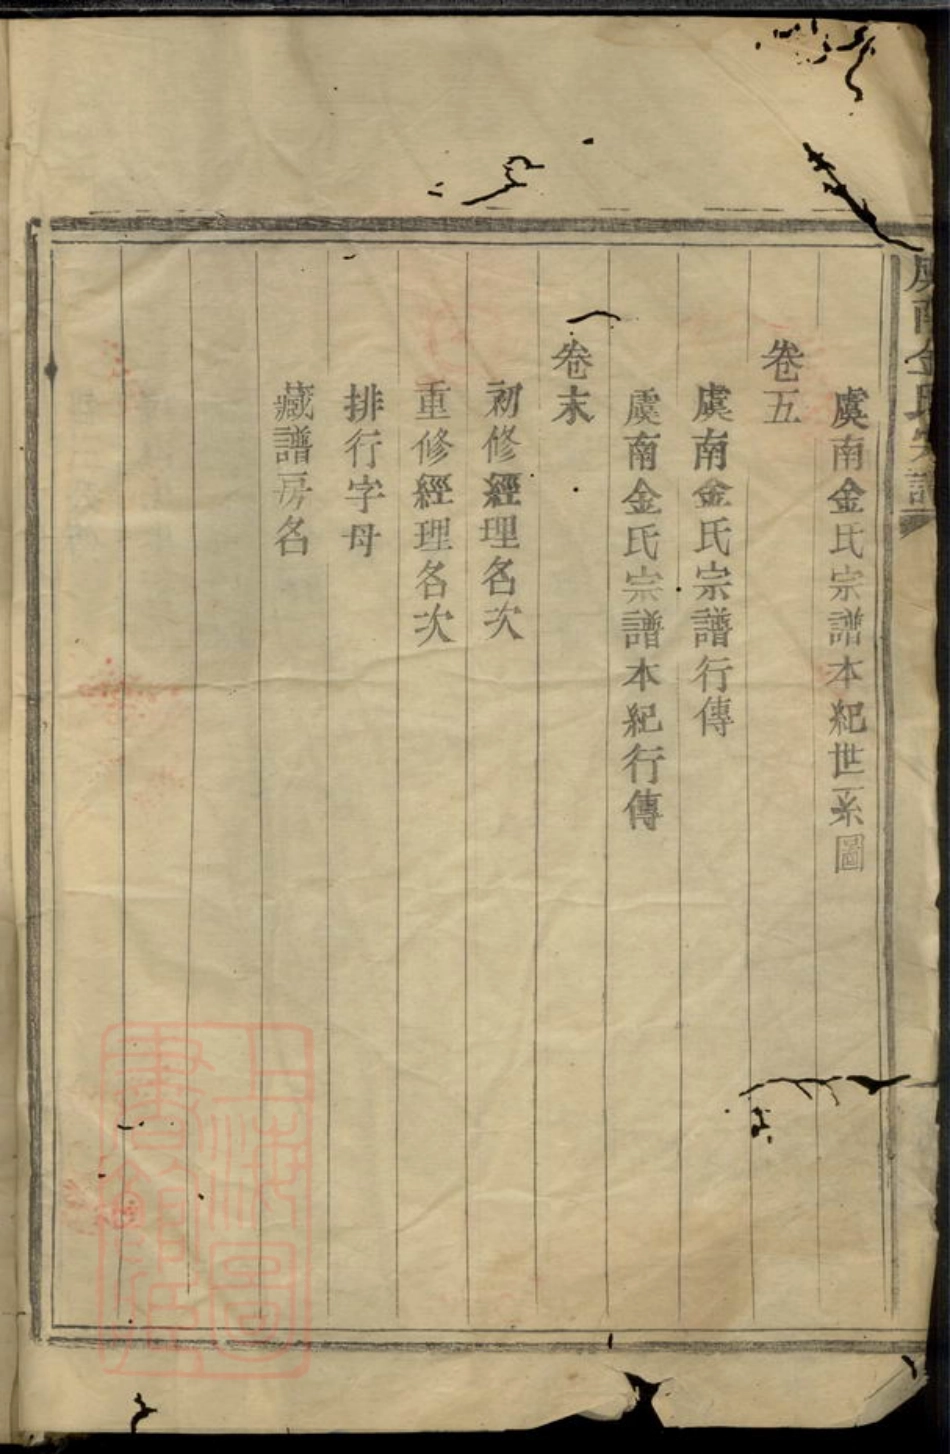 虞南金氏宗譜
虞南金氏宗譜本紀世系圖
卷五
虞南金氏宗譜行傳
虞南金氏宗譜本紀行傳
卷末
初修經理名次
重修經理名次
排行字母
藏譜房名
上海圖
書館藏